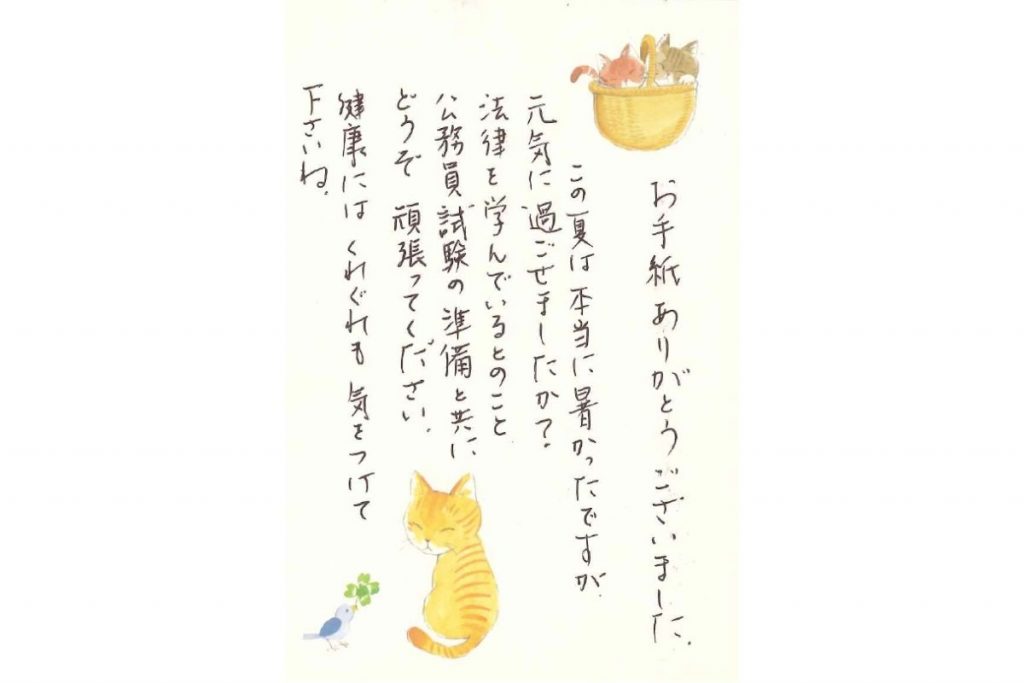 お手紙ありがとうございました.
この夏は本当に暑かったですが
元気に過ごせましたか?
法律を学んでいるとのこと
公務員試験の準備と共に
どうぞ 頑張ってください.
健康には くれぐれも 気をつけて
下さいね.